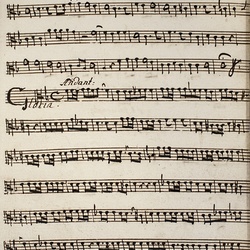 Andant:
Gloria.